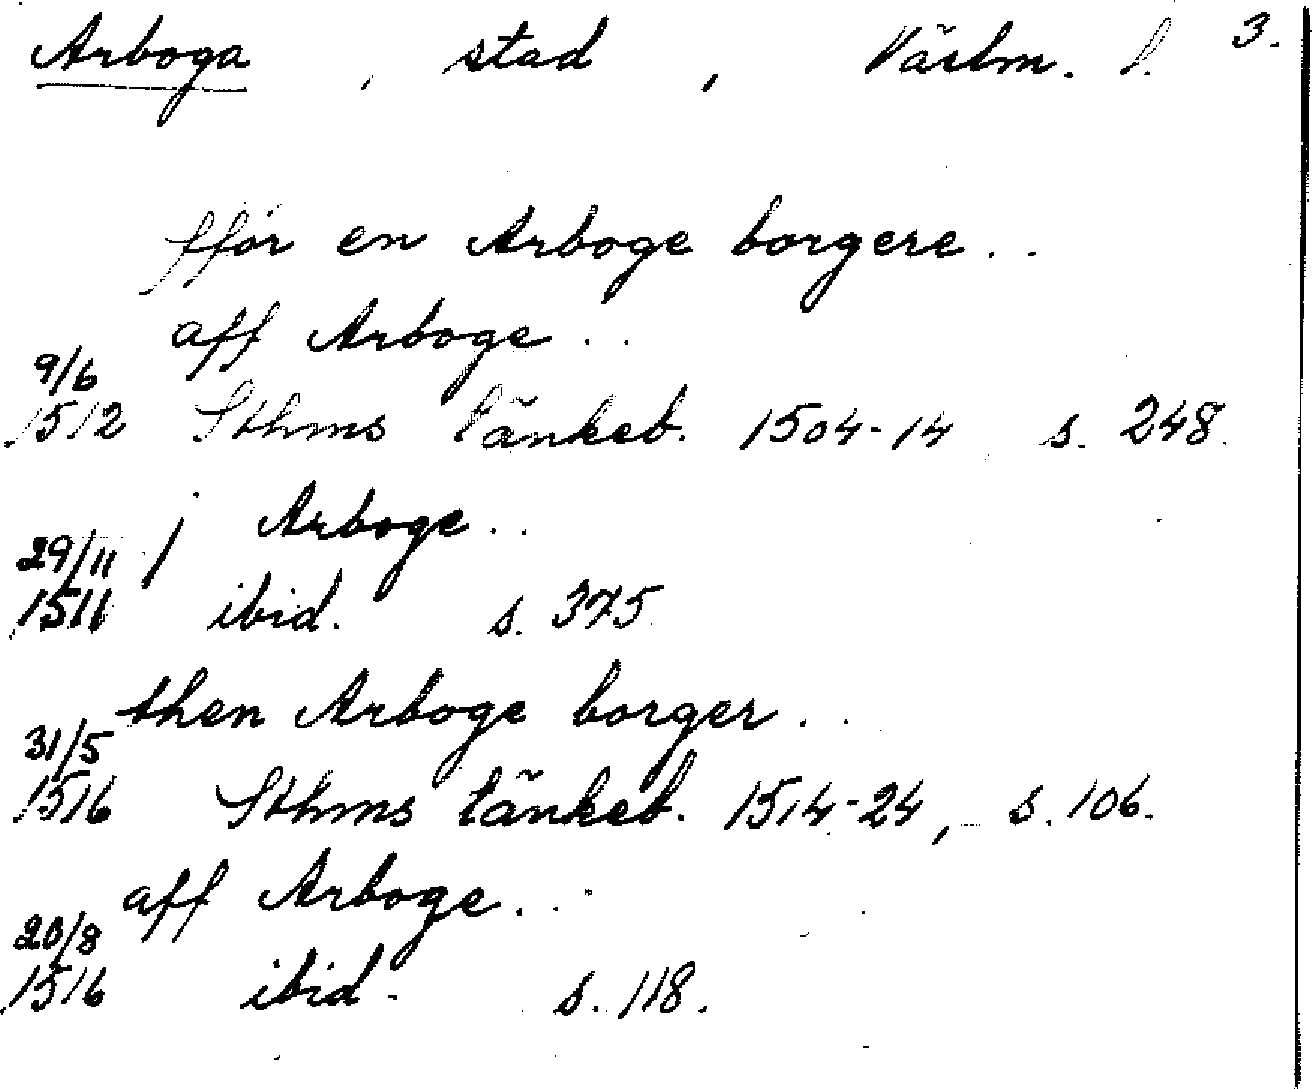 Arboga, stad, Västm. l. 3.
fför en Arboge borgere..
aff Arboge..
9/6
1512 Sthms tänkeb. 1504-14 s. 248.
j Arboge..
29/11
1511 ibid. s. 375.
then Arboge borger..
31/5
1516 Sthms tänkeb. 1514-24, s. 106.
aff Arboge..
20/8
1516 ibid. s. 118.